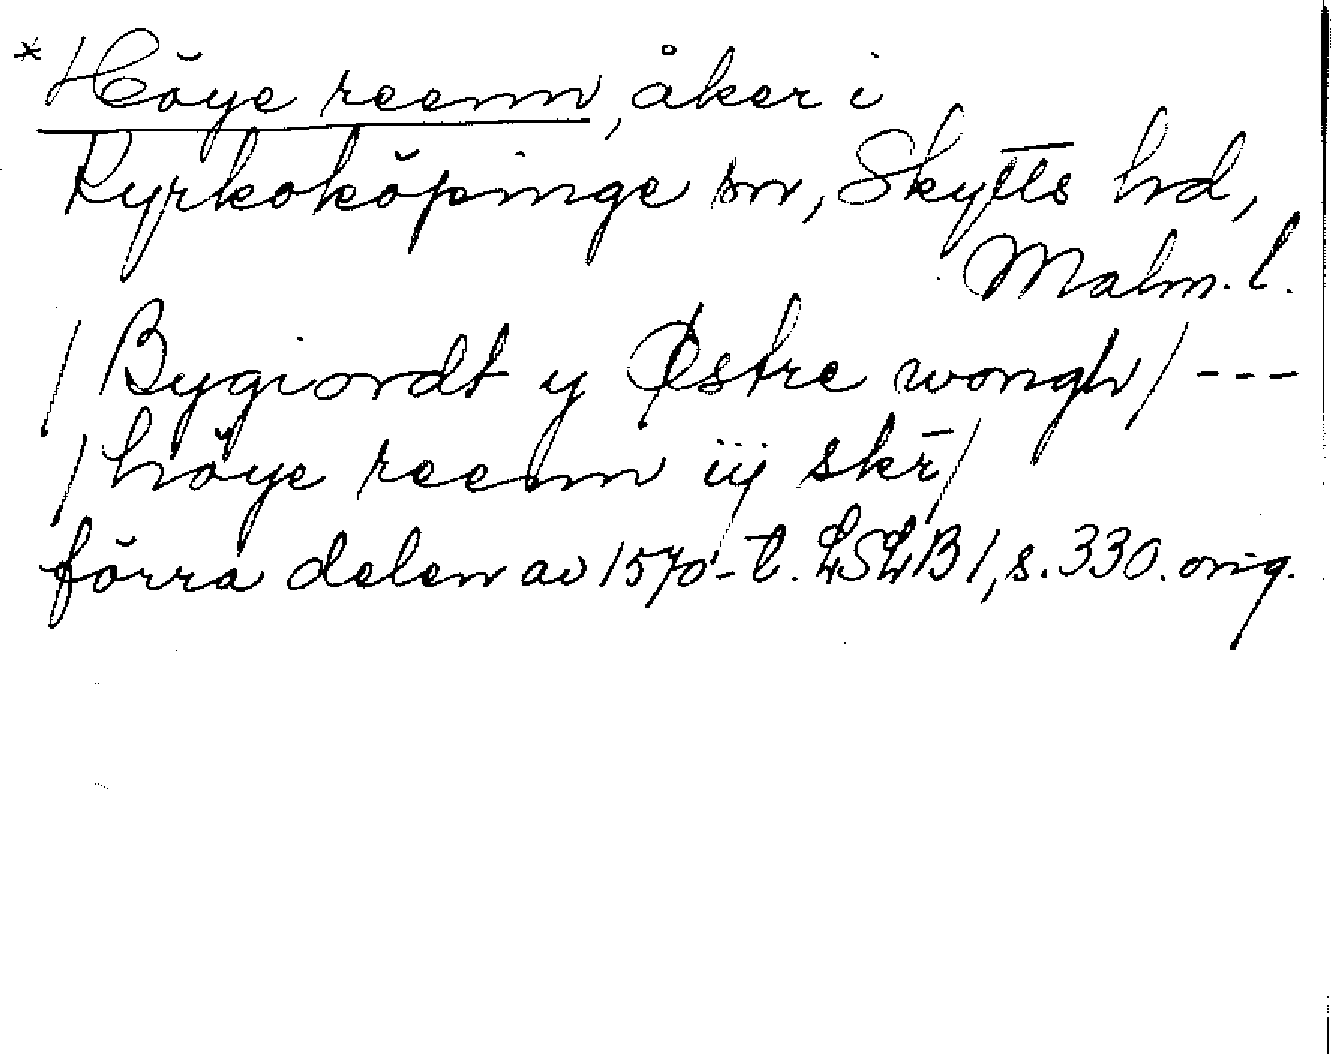 * Höye reenn, åker i
Kyrkoköpinge sn, Skytts hd,
Malm. l.
/ Bygiordt y Østre wongh / ---
/ höye reenn iij skr̄ /
förra delen av 1570-t. LSLB 1, s. 330. orig.